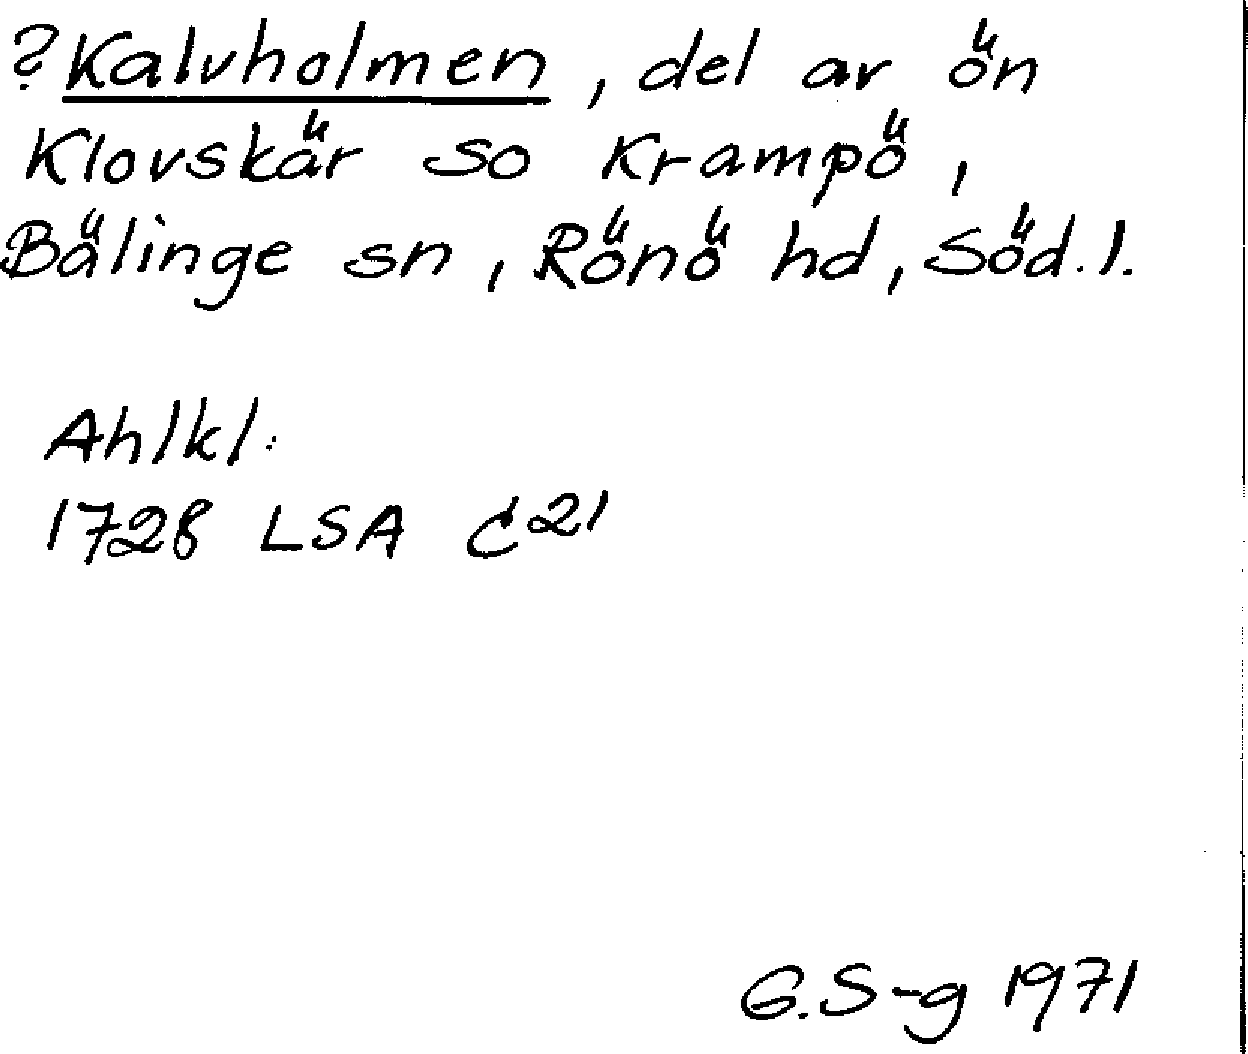 ?Kalvholmen, del av ön
Klovskär so Krampö,
Bälinge sn, Rönö hd, Söd.l.
Ahlkl:
1728 LSA C21
G.S-g 1971